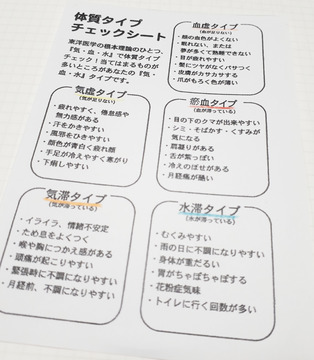 体質タイプ
チェックシート
東洋医学の根本理論のひとつ、
『気・血・水』で体質タイプ
チェック！当てはまるものが
多いところがあなたの『気・
血・水』タイプです。
血虚タイプ
(血が足りない)
・顔の血色がよくない
・眠れない、または
夢が多くて熟睡できない
・目が疲れやすい
・髪にツヤがなくパサつく
・皮膚がカサカサする
・爪がもろく色が薄い
気虚タイプ
(気が足りない)
・疲れやすく、倦怠感や
無力感がある
・汗をかきやすい
・風邪をひきやすい
・顔色が青白く疲れ顔
・手足が冷えやすく寒がり
・下痢しやすい
瘀血タイプ
(血が滞っている)
・目の下のクマが出来やすい
・シミ・そばかす・くすみが
気になる
・肩凝りがある
・舌が紫っぽい
・冷えのぼせがある
・月経痛が酷い
気滞タイプ
(気が滞っている)
・イライラ、情緒不安定
・ため息をよくつく
・喉や胸につかえ感がある
・頭痛が起こりやすい
・緊張時に不調になりやすい
・月経前、不調になりやすい
水滞タイプ
(水が滞っている)
・むくみやすい
・雨の日に不調になりやすい
・身体が重だるい
・胃がちゃぽちゃぽする
・花粉症気味
・トイレに行く回数が多い